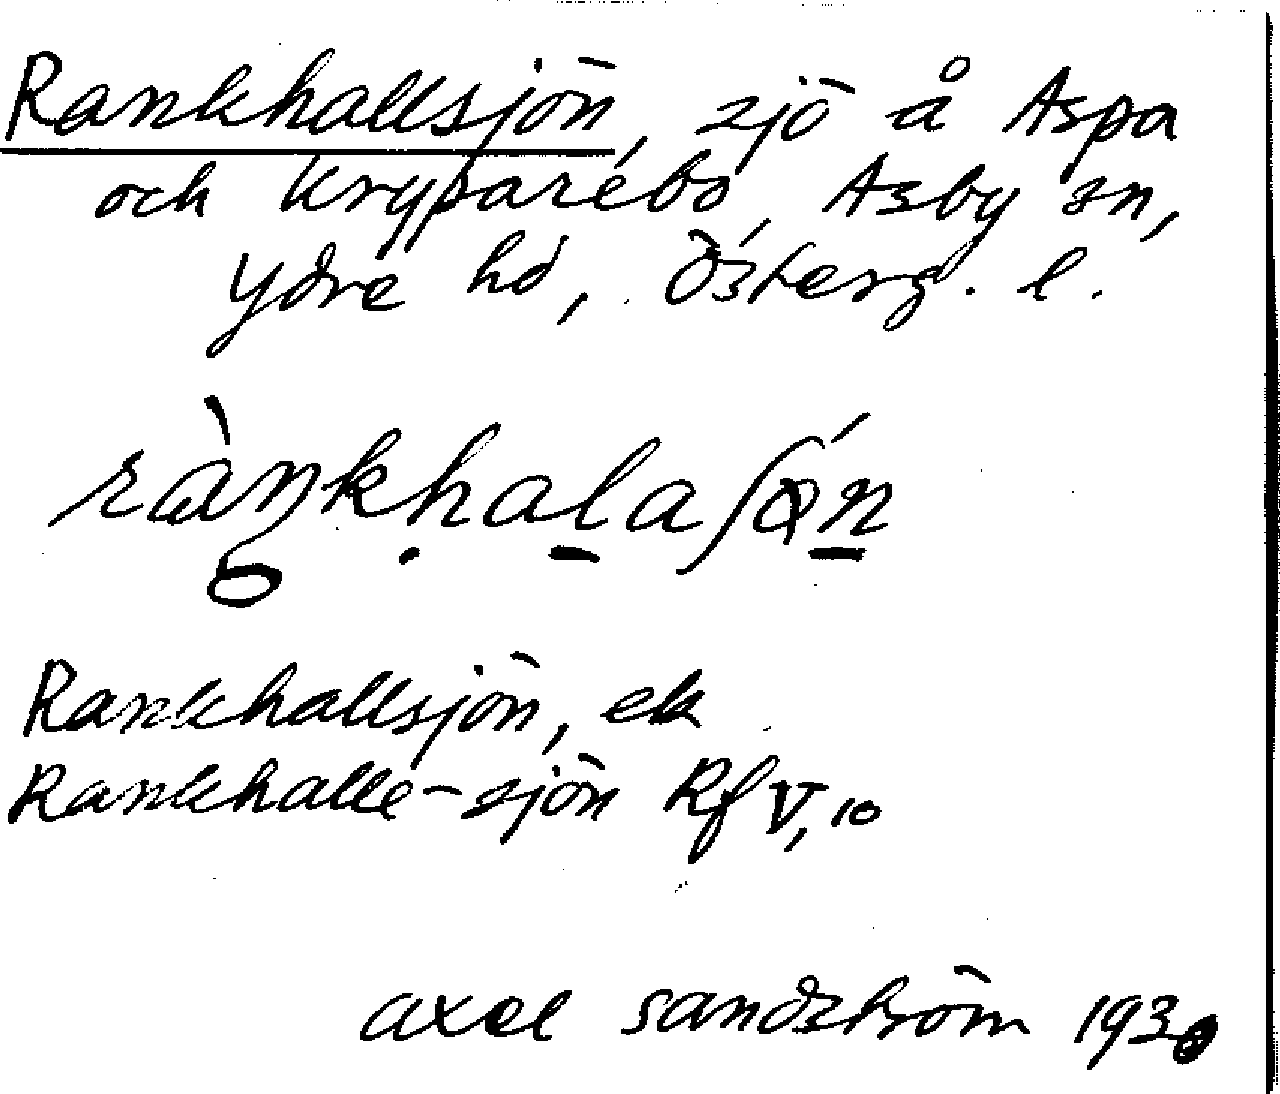 Rankhallsjön, sjö å Aspa
och Kryparebo, Asby sn,
Ydre hd, Österg. l.
rànkhalaʃǿn
Rankhallsjön, ek
Rankhalle-sjön Rf V, 10
axel sandström 193